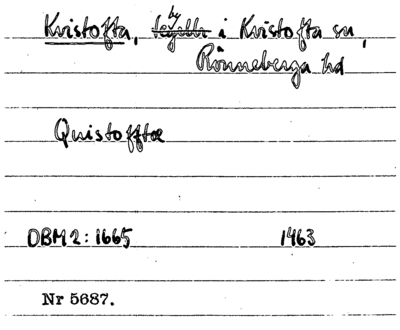 Kvistofta, by i Kvistofta sn,
Rönneberga hd
Quistofftæ
DBM 2: 1665 1463
Nr 5687.